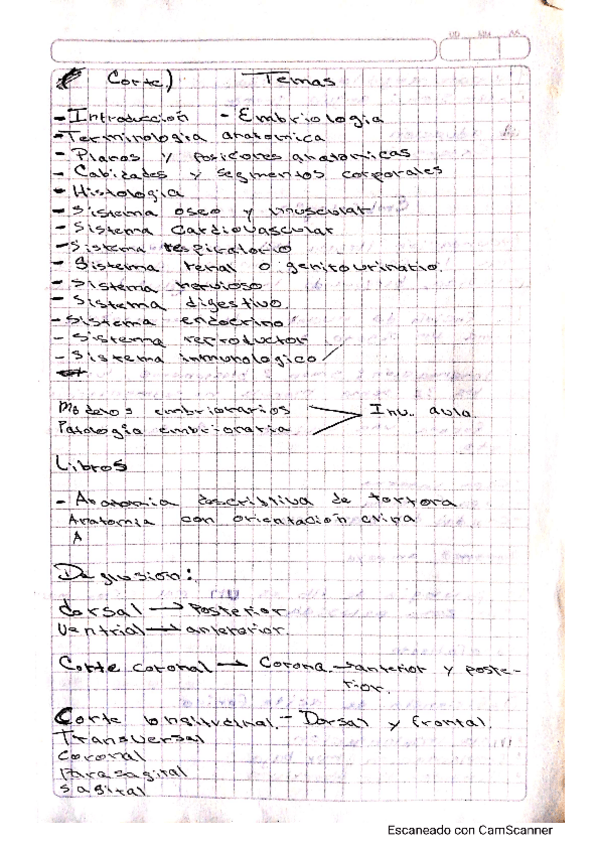 Corte) Temas
- Introducción - Embriologia
- Terminologia anatomica
- Planos y posiciones anatomicas
- Cabidades y segmentos corporales
- Histologia
- Sistema oseo y muscular
- Sistema cardiovascular
- Sistema respiratorio
- Sistema renal o genitourinario.
- Sistema nervioso
- Sistema digestivo
- Sistema endocrino
- Sistema reproductor
- Sistema inmunologico
Modelos embrionarios
Patologia embrionaria
Inv. aula.
Libros
- Anatomia descriptiva de tortora
Anatomia con orientación
A
:
dorsal → Posterior
Ventrial → anterior.
Corte coronal → Corona → anterior y poste-
rior.
Corte longitudinal. - Dorsal y frontal.
Transversal
Coronal
Parasagital
Sagital
Escaneado con CamScanner